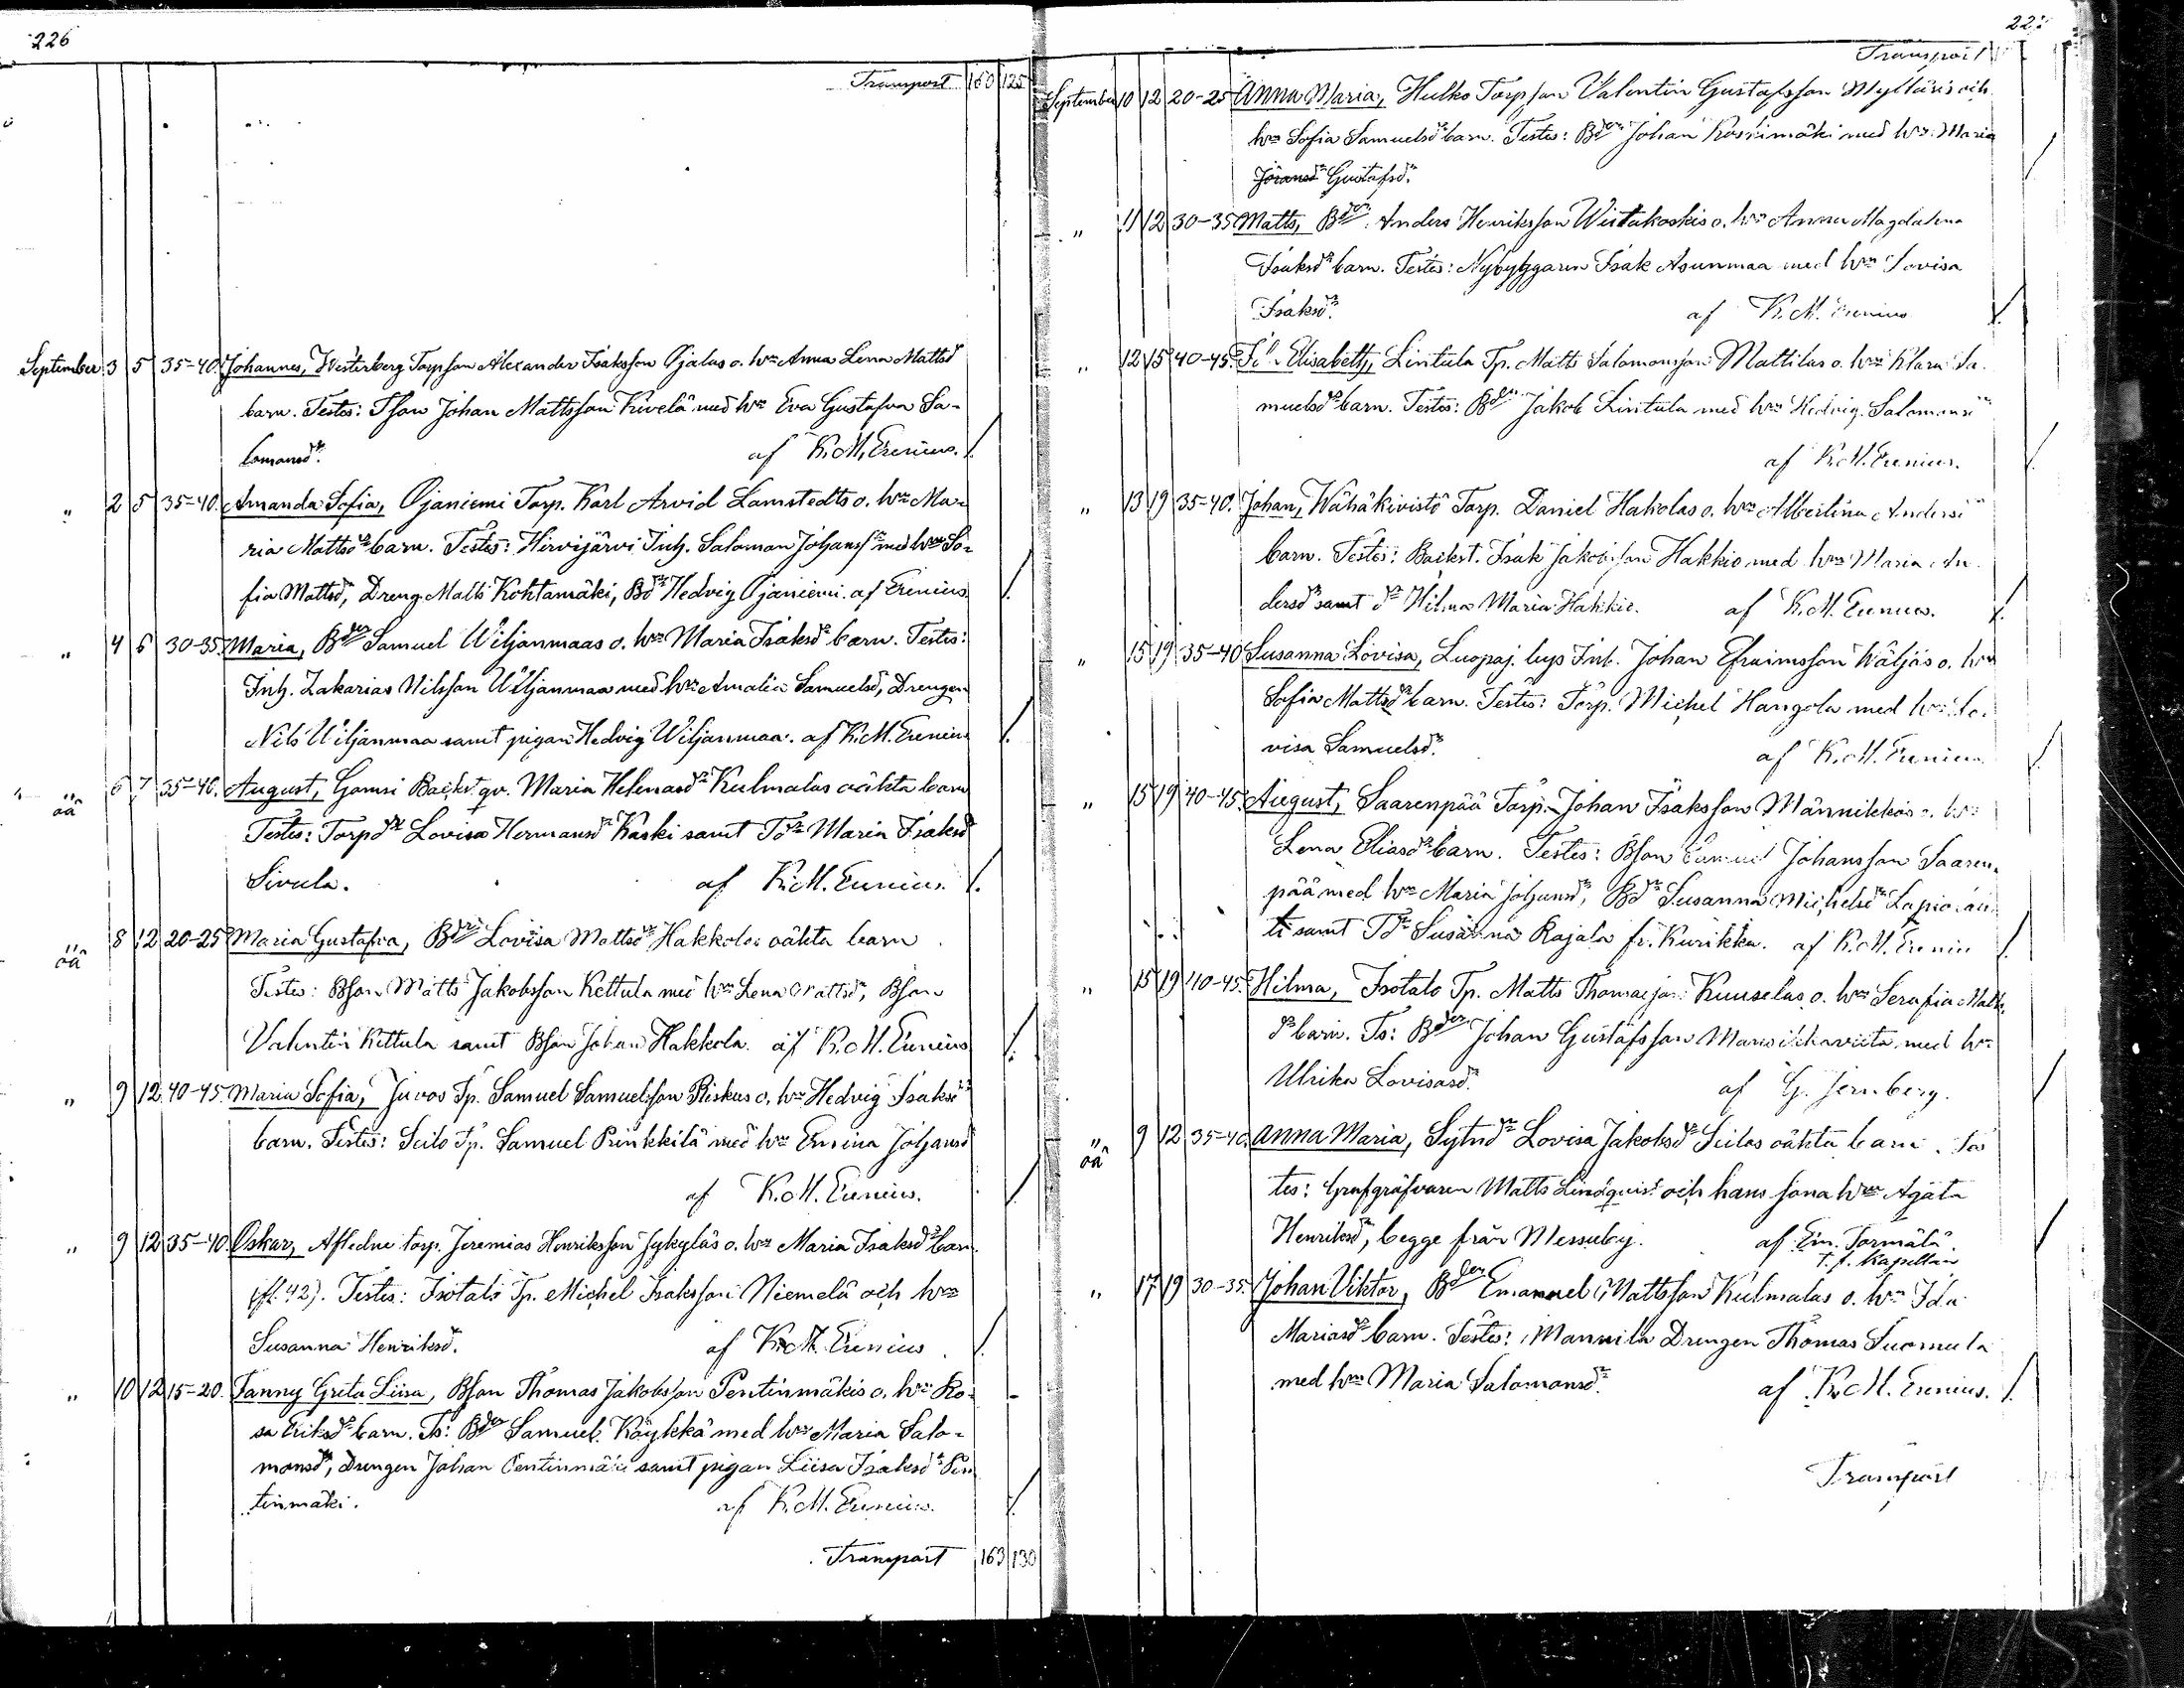 226
Transport 160 125
September 3 5 35-40. Johannes, Westerberg Torpson Alexander Isaksson Ojalas o. hu Anna Lena Mattsd
barn. Testes: Tson Johan Mattsson Kivelä med hu Eva Gustafva Sa-
lomonsdr. af K. M. Erenius. /.
" 2 5 35-40. Amanda Sofia, Ojaniemi Torp. Karl Arvid Lamstedts o. hu Ma-
ria Mattsdr barn. Testes: Hirvijärvi Inh. Salomon Johanss med hu So-
fia Mattsd, Dreng. Matts Kohtamäki, Bdr Hedvig Ojaniemi. af Erenius /.
" 4 6 30-35. Maria, Bden Samuel Wiljanmaas o. hu Maria Isaksdr barn. Testes:
Inh. Zakarias Nilsson Wiljanmaa med hu Amalia Samuelsd, Drengen
Nils Wiljanmaa samt pigan Hedvig Wiljanmaa. af K. M. Erenius /.
" oä 6 7 35-40. August, Backst. qv. Maria Helenasdr Kulmalas oäkta barn
Testes: Torpdr Lovisa Hermansdr Kaski samt Tdr Maria Isaksd
Sivula. af K. M. Erenius. /.
" oä 8 12 20-25 Maria Gustafva, Bdrs Lovisa Mattsdr Hakkolas oäkta barn
Testes: Bson Matts Jakobsson Kettula med hu Lena Mattsdr, Bson
Valentin Kettula samt Bson Johan Hakkola. af K. M. Erenius /.
" 9 12 40-45. Maria Sofia, Juvos Tp. Samuel Samuelsson Riskus o. hu Hedvig Isaksd
barn. Testes: Seilo Tp. Samuel Prinkkilä med hu Johansd
af K. M. Erenius. /
" 9 12 35-40. Oskar, Afledne torp. Jeremias Henriksson Jykyläs o. hu Maria Isaksdr barn.
(fl. 42). Testes: Isotalo Tp. Michel Isaksson Niemelä och hu
Susanna Henriksd. af K. M. Erenius. /.
" 10 12 15-20. Fanny Greta Liisa, Bson Thomas Jakobsson Pentinmäkis o. hu Ro-
sa Eriksdr barn. Ts: Bden Samuel Köykkä med hu Maria Salo-
monsdr, Drengen Johan Pentinmäki samt pigan Liisa Isaksdr Pen
tinmäki. af K. M. Erenius. /.
Transport 163 130
Transport
September 10 12 20-25 Anna Maria, Hulko Torpson Valentin Gustafsson Mylläris och
hu Sofia Samuelsdr barn. Testes: Bden Johan Koskimäki med hu Maria
Joransd Gustafsdr. /
" 11 12 30-35 Matts, Bden Anders Henriksson Wiitakoskis o. hu Anna Magdalena
Isaksdr barn. Testes: Nybyggaren Isak Asunmaa med hu Lovisa
Isaksdr. af K. M. Erenius /.
" 12 15 40-45. Elisabeth, Lintula Tp. Matts Salomonsson Mattilas o. hu Klara Sa-
muelsdr barn. Testes: Bden Jakob Lintula med hu Hedvig Salomonsd
af K. M. Erenius. /
" 13 19 35-40. Johan, Wähäkivistö Torp. Daniel Hakolas o. hu Albertina Andersd
barn. Testes: Backst. Isak Jakobsson Hakkio med hu Maria An-
dersdr samt dr Hilma Maria Hakkio. af K. M. Erenius. /.
" 15 19 35-40 Susanna Lovisa, Luopaj. bys Inh. Johan Efraimsson Wäljäs o. hu
Sofia Mattsdr barn. Testes: Torp. Michel Hangola med hu Lo-
visa Samuelsdr. af K. M. Erenius. /
" 15 19 40-45. August, Saarenpää Torp. Johan Isaksson Männikkös o. hu
Lena Eliasdr barn. Testes: Bson Samuel Johansson Saaren-
pää med hu Maria Johansdr, Bdr Susanna Michelsdr
samt Tdr Susanna Rajala fr. Kurikka. af K. M. Erenius /.
" 15 19 40-45. Hilma, Isotalo Tp. Matts Thomasson Kuuselas o. hu Serafia Matts
dr barn. Ts: Bden Johan Gustafsson med hu
Ulrika Lovisasdr. af G. Jernberg. /
" oä 9 12 35-40 Anna Maria, Sytndr Lovisa Jakobsdr Seilos oäkta barn. Tes
tes: Grafgräfvaren Matts Lindquist och hans sona hu Agata
Henriksdr, begge från Messuby. af Em. Tormälä.
T. f. Kapellan
" 17 19 30-35. Johan Viktor, Bden Emanuel Mattsson Kulmalas o. hu Ida
Mariasdr barn. Testes: Mannila Drengen Thomas Suomula
med hu Maria Salomonsdr. af K. M. Erenius. /.
Transport